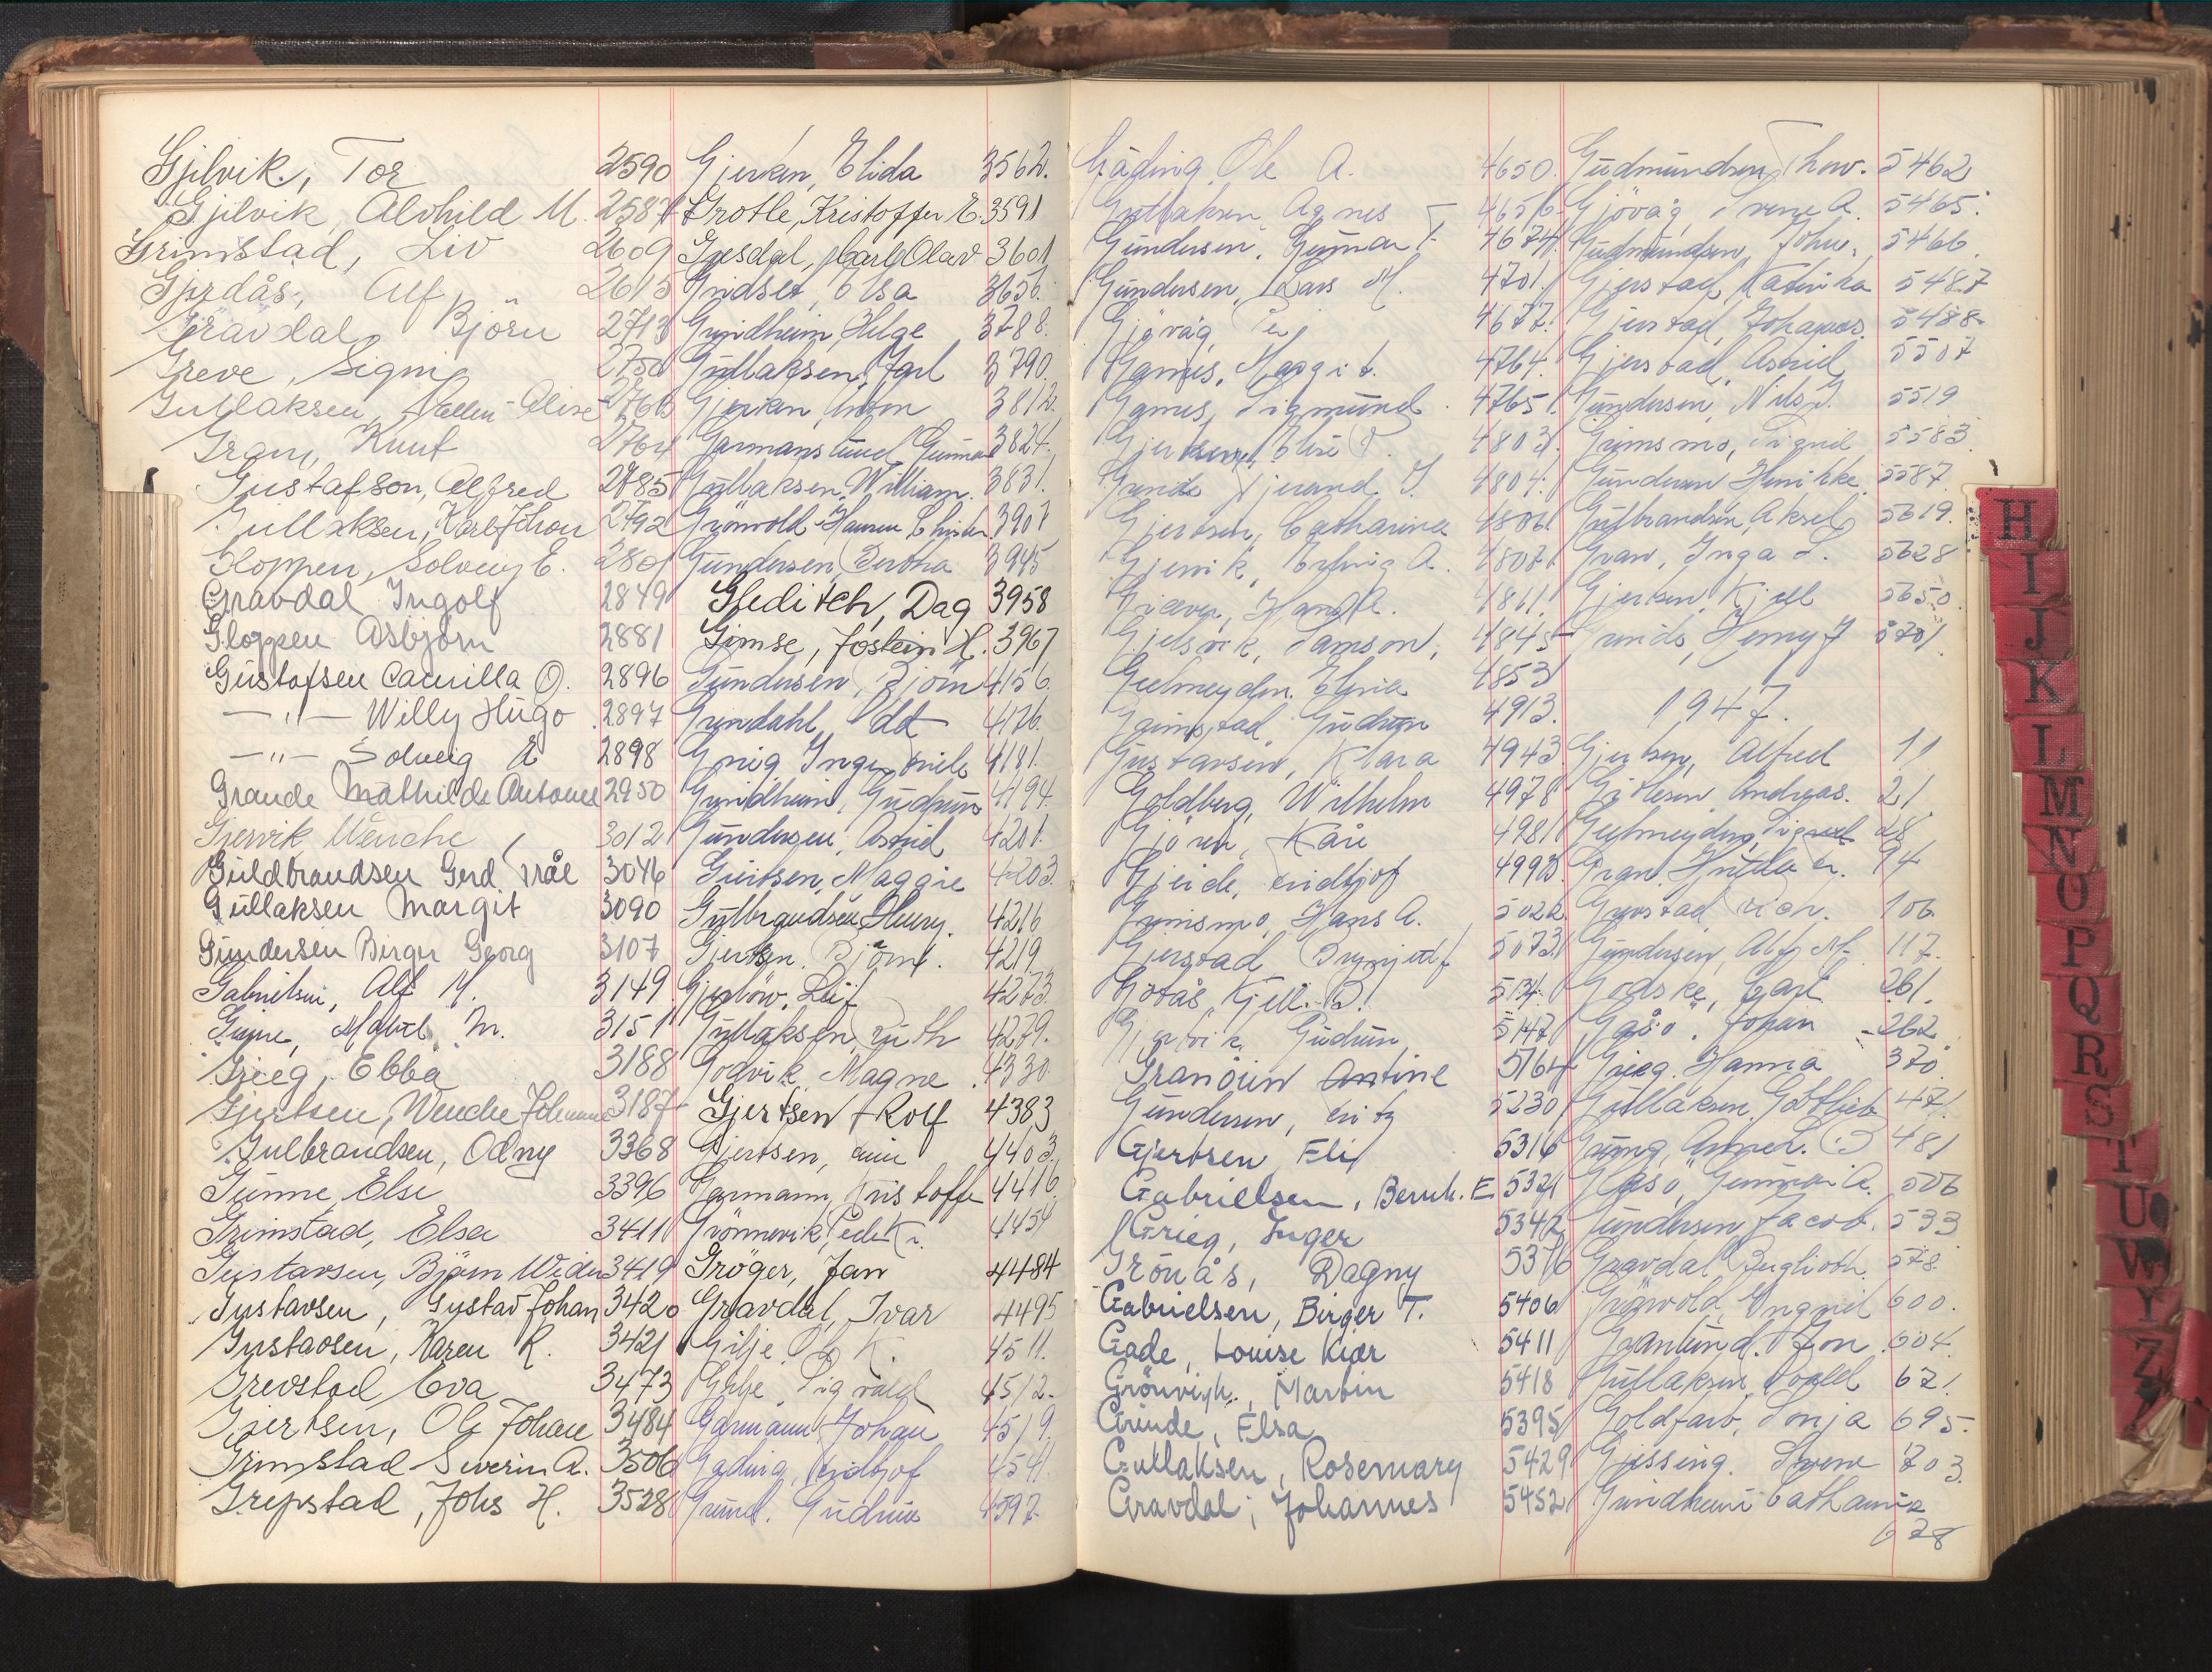 Gjilvik, Tor 2590
Gjilvik, Alvhild M. 2587
Grimstad, Liv 2609
Gjerdås, Alf 2615
Gravdal, Björn 2713
Greve, Signi 2750
Gullaksen, Olive 2760
Gram, Knut 2764
Gustafson, Alfred 2785
Gullaksen, Karl Johan 2792
Gloppen, Solveig E. 2801
Gravdal Ingolf 2849
Gloppen Asbjørn 2881
Gustafsen Camilla O. 2896
—"— Willy Hugo 2897
—"— Solveig A 2898
Grande Mathilde Antonie 2950
Gjervik Wenche 3012
Guldbrandsen Gerd Vråle 3046
Gullaksen Margit 3090
Gundersen Birger Georg 3107
Gabrielsen, Alf M. 3149
Mabel M. 3151
Grieg, Ebba 3188
Gjertsen, Wenche Johanne 3187
Gulbrandsen, Odny 3368
Gunne, Else 3396
Grimstad, Elsa 3411
Gustavsen, Bjørn Widar 3419
Gustavsen, Gustav Johan 3420
Gustavsen, Karen R. 3421
Grevstad, Eva 3473
Gjertsen, Ole Johan 3484
Grimstad Severin A. 3506
Grepstad, Johs H. 3528
Elida 3562.
Grotle, Kristoffer E. 3591
Gjesdal, Carl Olav 3601
Grindset, Elsa 3656.
Grindheim, Helge 3788.
Gullaksen, Jarl 3790.
3812.
Garmanslund Gunnar 3824.
Gullaksen, William. 3831.
Grönvold-Hansen Christian 3907
Gundersen, Bertha 3945
Gleditch, Dag 3958
Gimse, Jostein H. 3967
Gundersen, Bjørn 4156
Grindahl, Odd 4176.
Grieg Inger 4181.
Grindheim, Gudrun 4194.
Gundersen, Astrid 4201.
Maggie 4203.
Gulbrandsen, Henry. 4216
Gjertsen, Björn. 4219.
Leif 4273.
Gullaksen, Ruth 4279.
Godvik, Magne 4330.
Gjertsen, Rolf 4383
Gjertsen, 4403.
Garmann, Kristoffer 4416.
Grönnevik, Peder Kr. 4454
Gröger, Jan 4484
Gravdal, Ivar 4495
Gilje, Ole K. 4511.
Gilje, Sigvald 4512.
Garmann Johan 4519.
Gåding, Fridtjof 4541.
Grund, Gudrun 4592.
Gåding, Ole A. 4650.
Gullaksen Agnes 4656.
Gundersen, Gunnar F. 4674.
Gundersen, Lars M. 4701.
Gjövåg, Per 4677.
Games, Margit. 4764.
Games, Sigmund. 4765.
Gjertsen, Elise 4803.
Grinde Gjerand J. 4804.
Gjertsen, Catharina 4806.
Gjervik, Erling A. 4807.
Giæver, Hans R. 4811.
Gjelsvik, Samson, 4845
Gjelmeyden, 4853
Grimstad, Gudrun 4913.
Gustavsen, Klara 4943
Goldberg, Wilhelm 4978
Kåre 4981
Gjeide, Fridtjof 4992.
Grimsmo, Hans A. 5022.
Gjerstad, Brynjulf 5073.
Gotås, Kjell B. 5134.
Gjervik, Gudrun 5147
Granöien Antine 5164
Gundersen, Fritz 5230
Gjertsen Eli 5316
Gabrielsen, Bernh. E. 5321
Grieg, Inger 5342
Grönås, Dagny 5376
Gabrielsen, Birger T. 5406
Gade, Louise Kiær 5411
Grönvigh, Martin 5418
Grinde, Elsa 5395
Gullaksen, Rosemary 5429
Gravdal, Johannes 5452
Gudmundsen, Thorv. 5462
Gjövåg, Irene A. 5465.
Gudmundsen, John. 5466.
Gjerstad, Katinka 5487
Gjerstad, Johannes 5488.
Gjerstad, Astrid 5507
Gundersen, Nils J. 5519
Grimsmo, Sigrid 5583
Gundersen Henrikke 5587.
Gulbrandsen, Aksel 5619.
Gran, Inga S. 5628
Gjertsen, Kjell 5650.
Grinde, Henry J 5701.
1947.
Gjertsen, Alfred 11
Andreas. 21.
Gjelmeyden, Sigurd 28
Gran, Hulda 94
Gjerstad, Rich. 106
Gundersen, Alf M. 117.
Godske, Carl 261.
Gåsö, Johan 262
Grieg, Hanna 370.
Gullaksen, Gottlieb 471.
481
Gåsö, Gunnar A. 506
Gundersen, Jacob. 533
Gravdal, Berglioth. 578.
Grönvold, Ingrid 600.
Grønlund, Jon. 604.
Gullaksen, 621.
Goldfarb, Sonja 695.
Gjessing, Sverre 703.
Grindheim Cathamia
628
H
I
J
K
L
M
N
O
P
Q
R
S
T
U
W
Y
Z